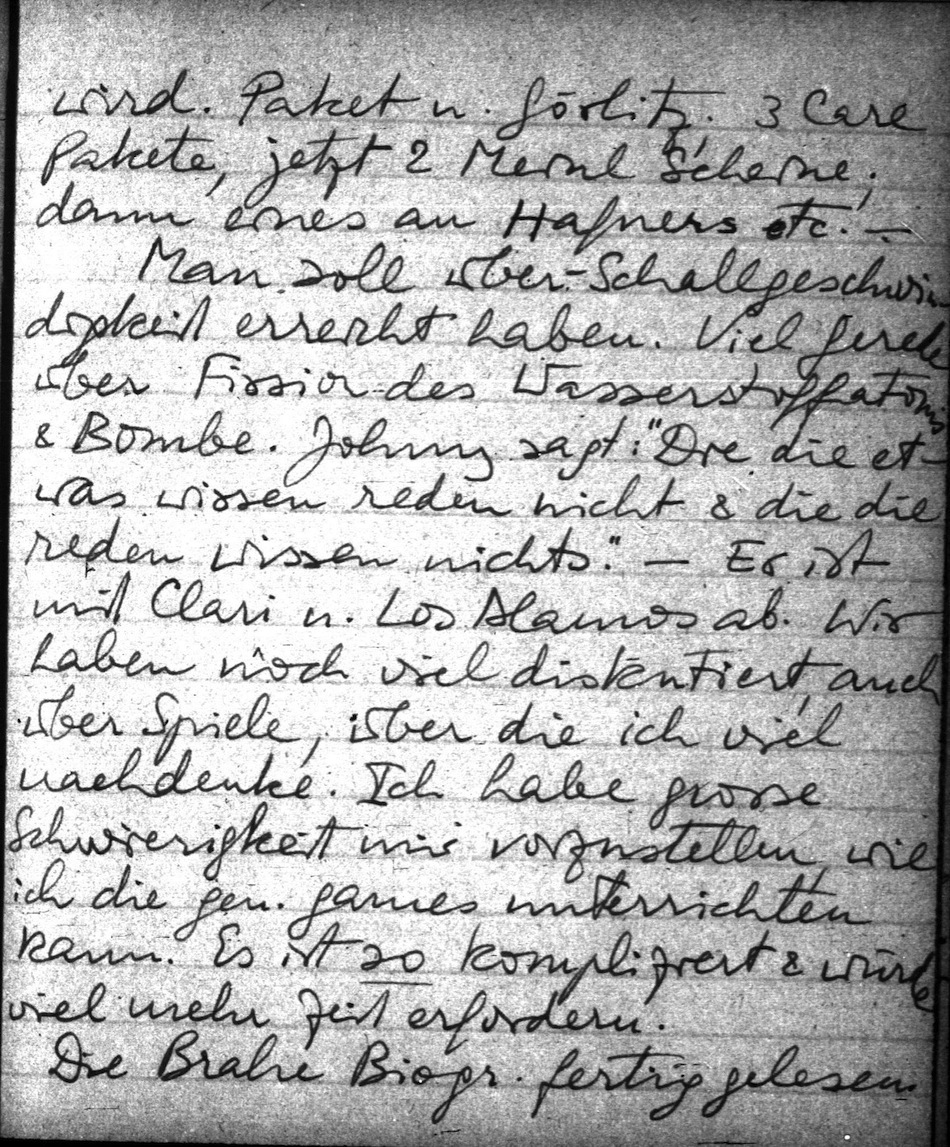 wird. Paket n. Görlitz. 3 Care
Pakete, jetzt 2 Meinl Scheine,
dann eines an Hafners etc. —
Man soll über-Schallgeschwin
digkeit erreicht haben. Viel Gerede
über Fission des Wasserstoffatoms
& Bombe. Johnny sagt: "Die die et-
was wissen reden nicht & die die
reden wissen nichts." — Er ist
mit Clari n. Los Alamos ab. Wir
haben noch viel diskutiert, auch
über Spiele, über die ich viel
nachdenke. Ich habe grosse
Schwierigkeit mir vorzustellen, wie
ich die gen. games unterrichten
kann. Es ist so kompliziert & würde
viel mehr Zeit erfordern.
Die Brahe Biogr. fertig gelesen.